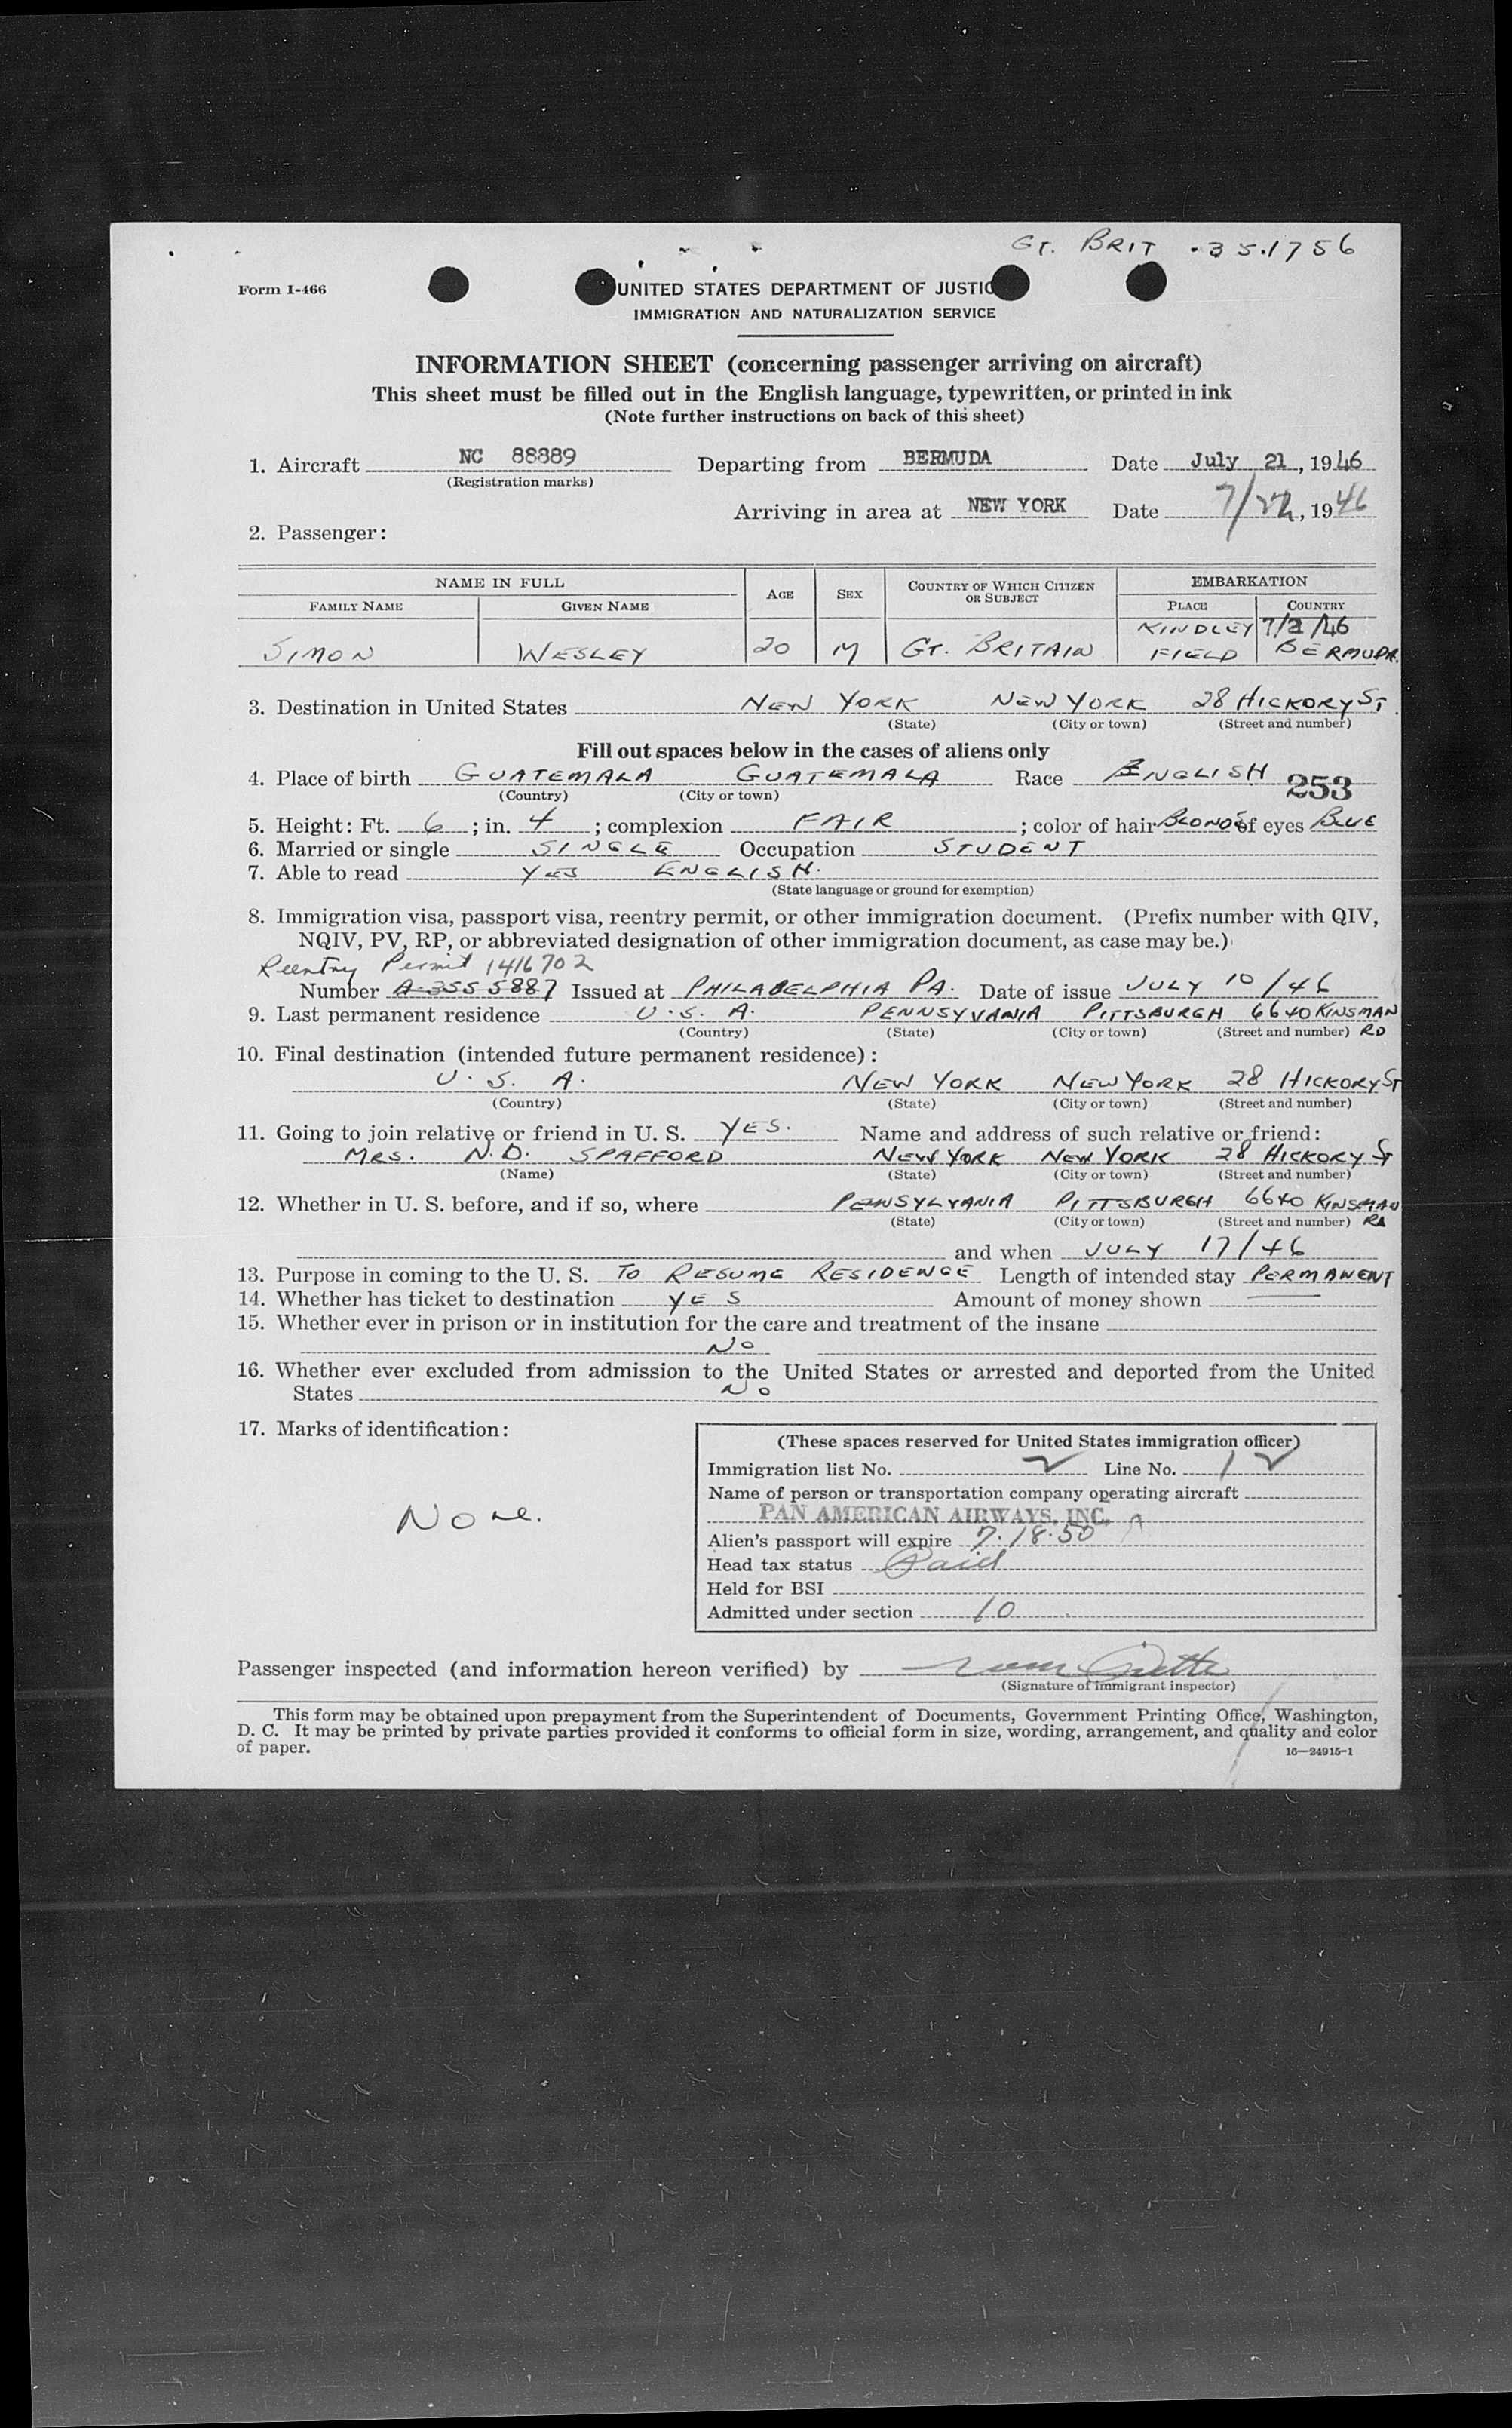 GT. BRIT - 35.1756
Form I-466
UNITED STATES DEPARTMENT OF JUSTIC
IMMIGRATION AND NATURALIZATION SERVICE
INFORMATION SHEET (concerning passenger arriving on aircraft)
This sheet must be filled out in the English language, typewritten, or printed in ink
(Note further instructions on back of this sheet)
1. Aircraft NC 88889 Departing from BERMUDA Date July 21, 1946
(Registration marks)
Arriving in area at NEW YORK Date 7/22, 1946
2. Passenger:
NAME IN FULL AGE SEX COUNTRY OF WHICH CITIZEN OR SUBJECT EMBARKATION
FAMILY NAME GIVEN NAME PLACE COUNTRY
KINDLEY 7/2/46
SIMON WESLEY 20 M GT. BRITAIN FIELD BERMUDA
3. Destination in United States NEW YORK NEW YORK 28 HICKORY ST.
(State) (City or town) (Street and number)
Fill out spaces below in the cases of aliens only
4. Place of birth GUATEMALA GUATEMALA Race ENGLISH 253
(Country) (City or town)
5. Height: Ft. 6; in. 4; complexion FAIR; color of hair BLOND of eyes BLUE
6. Married or single SINGLE Occupation STUDENT
7. Able to read YES ENGLISH.
(State language or ground for exemption)
8. Immigration visa, passport visa, reentry permit, or other immigration document. (Prefix number with QIV,
NQIV, PV, RP, or abbreviated designation of other immigration document, as case may be.)
Reentry Permit 1416702
Number A-3555887 Issued at PHILADELPHIA PA. Date of issue JULY 10/46
9. Last permanent residence U.S.A. PENNSYVANIA PITTSBURGH 6640 KINSMAN
(Country) (State) (City or town) (Street and number) RD
10. Final destination (intended future permanent residence):
U.S.A. NEW YORK NEW YORK 28 HICKORY ST
(Country) (State) (City or town) (Street and number)
11. Going to join relative or friend in U. S. YES. Name and address of such relative or friend:
MRS. N.D. SPAFFORD NEW YORK NEW YORK 28 HICKORY ST
(Name) (State) (City or town) (Street and number)
12. Whether in U. S. before, and if so, where PENNSYLVANIA PITTSBURGH 6640 KINSMAN
(State) (City or town) (Street and number) RD
and when JULY 17/46
13. Purpose in coming to the U. S. TO RESUME RESIDENCE Length of intended stay PERMANENT
14. Whether has ticket to destination YES Amount of money shown —
15. Whether ever in prison or in institution for the care and treatment of the insane
No
16. Whether ever excluded from admission to the United States or arrested and deported from the United
States No
17. Marks of identification:
None.
(These spaces reserved for United States immigration officer)
Immigration list No. 2 Line No. 12
Name of person or transportation company operating aircraft
PAN AMERICAN AIRWAYS, INC.
Alien's passport will expire 7.18.50
Head tax status Paid
Held for BSI
Admitted under section 10
Passenger inspected (and information hereon verified) by
(Signature of immigrant inspector)
This form may be obtained upon prepayment from the Superintendent of Documents, Government Printing Office, Washington,
D. C. It may be printed by private parties provided it conforms to official form in size, wording, arrangement, and quality and color
of paper.
16—24915-1